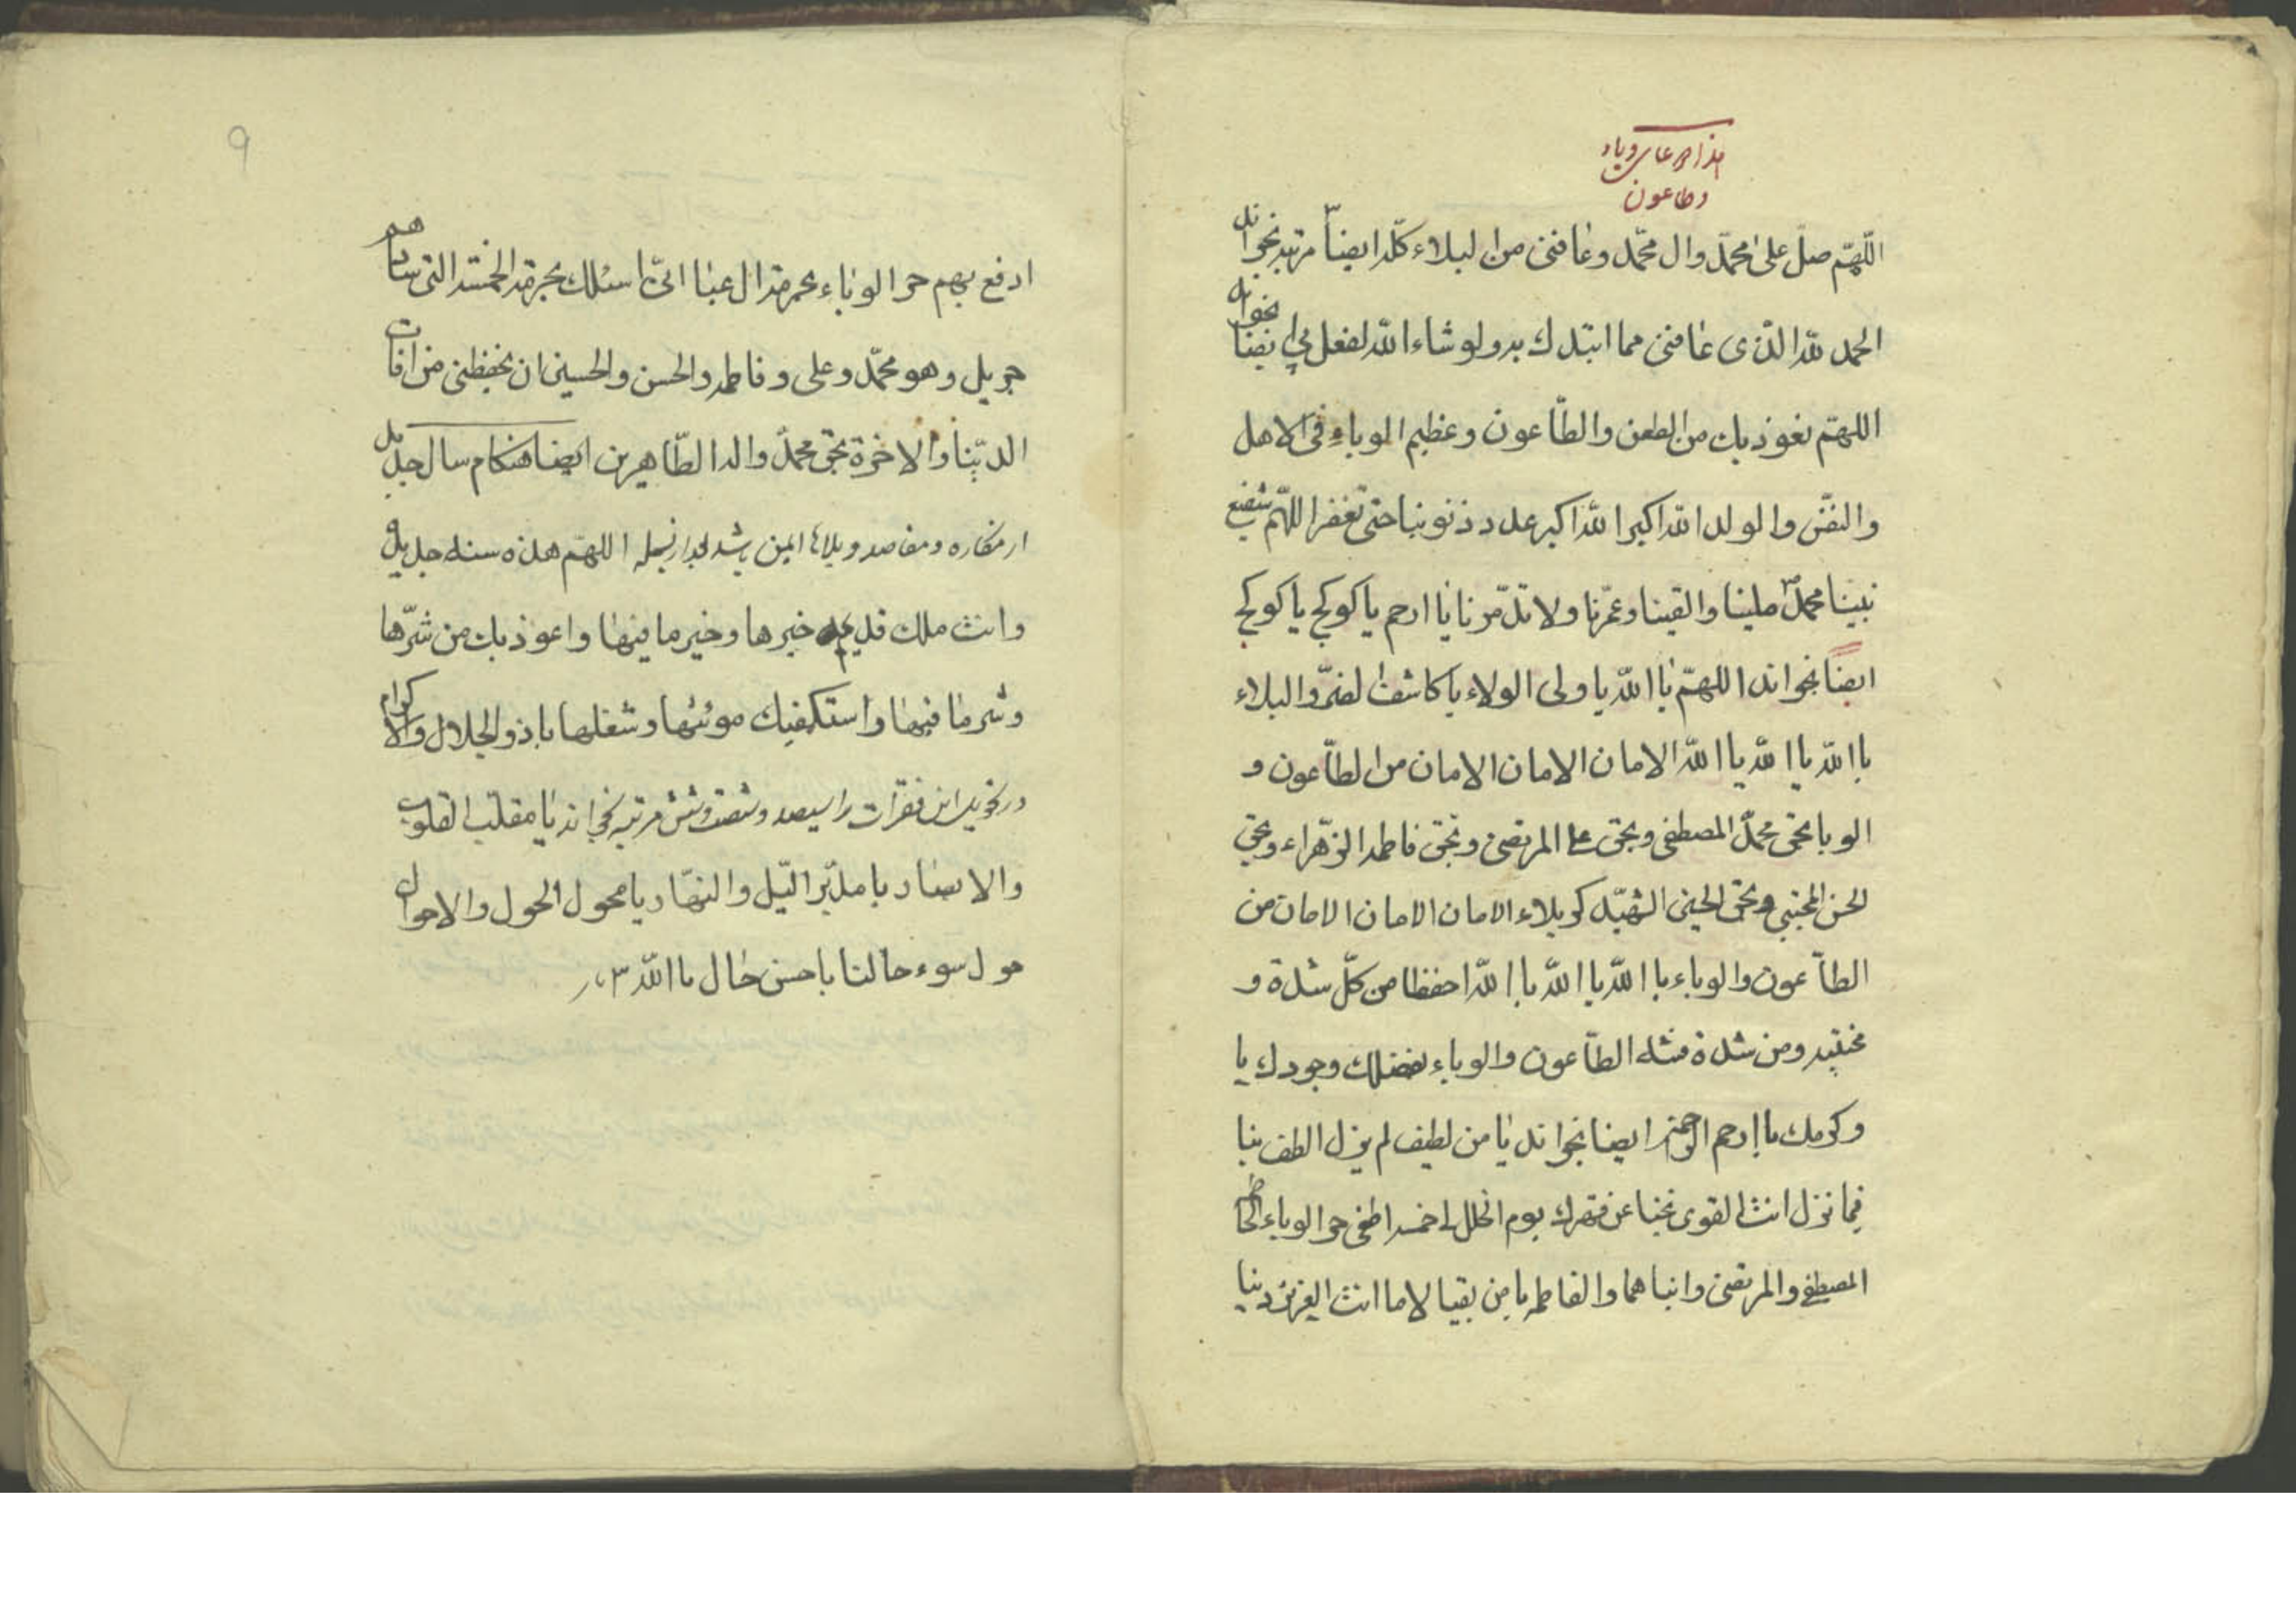 هذا دعای وباء
و طاعون
اللّهمّ صلّ علی محمّد وال محمّد وعافنی من البلاء کلّه ایضاً ۳ مرتبه بخواند
الحمد للّه الّذی عافنی مما ابتلاك به ولو شاء اللّه لفعل بی ایضا بخواند
اللهمّ نعوذ بك من الطعن والطّاعون وعظیم الوباء فی الاهل
والنفس والولد اللّه اکبر اللّه اکبر عدد ذنوبنا حتی تغفر اللّهم شفیع
نبینا محمدّ صلینا والقینا وعمّرنا ولا تدمّرنا یا ارحم یا کوکج یا کوکج
ایضاً بخواند اللهمّ یا اللّه یا ولی الولاء یا کاشف الضرّ والبلاء
یا اللّه یا اللّه یا اللّه الامان الامان الامان من الطّاعون و
الوبا بحق محمدّ المصطفی وبحق علی المرتضی وبحق فاطمه الزهّراء وبحق
الحسن المجتبی وبحق الحسین الشهید کربلاء الامان الامان الامان من
الطاّعون والوباء یا اللّه یا اللّه یا اللّه احفظا من کلّ شدة و
ومن شدة الطاّعون والوباء بفضلك وجودك یا
وکرمك یا ارحم الرحمین ایضا بخواند یا من لطیف لم یزل الطف بنا
فیما نزل انت القوی نجنا عن قهرك یوم الخلل لی خمسة اطفی حر الوباء الحاطمه
المصطفی والمرتضی وابناهما والفاطمه یا من انت العزیز
۹
ادفع بهم حر الوباء بحرمة ال عبا انیّ اسئلك بحرمة الخمسة التی سادهم
جبریل وهو محمّد وعلی وفاطمه والحسن والحسین ان یحفظنی من افات
الدنیا والاخرة بحق محمدّ واله الطّاهیرین ایضا هنکام سال جدید
از مکاره و مفاصد و بلاها ایمن باشد بعد از بسمله اللهمّ هذه سنة جدیدة
وانت ملك قدیم خیرها وخیر ما فیها واعوذ بك من شرّها
وشر ما فیها واستکفیك موئنها وشغلها یا ذو الجلال والاکرام
در تحویل این فقرات را سیصد و شصت و شش مرتبه بخواند یا مقلب القلوب
والابصار یا مدبّر الیّل والنهّار یا محول الحول والاحوال
حول سوء حالنا باحسن حال یا اللّه ۳ بار